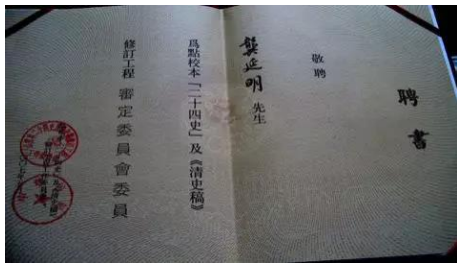 聘書
敬聘
龔延明 先生
爲點校本「二十四史」及《清史稿》
修訂工程 審定委員會委員